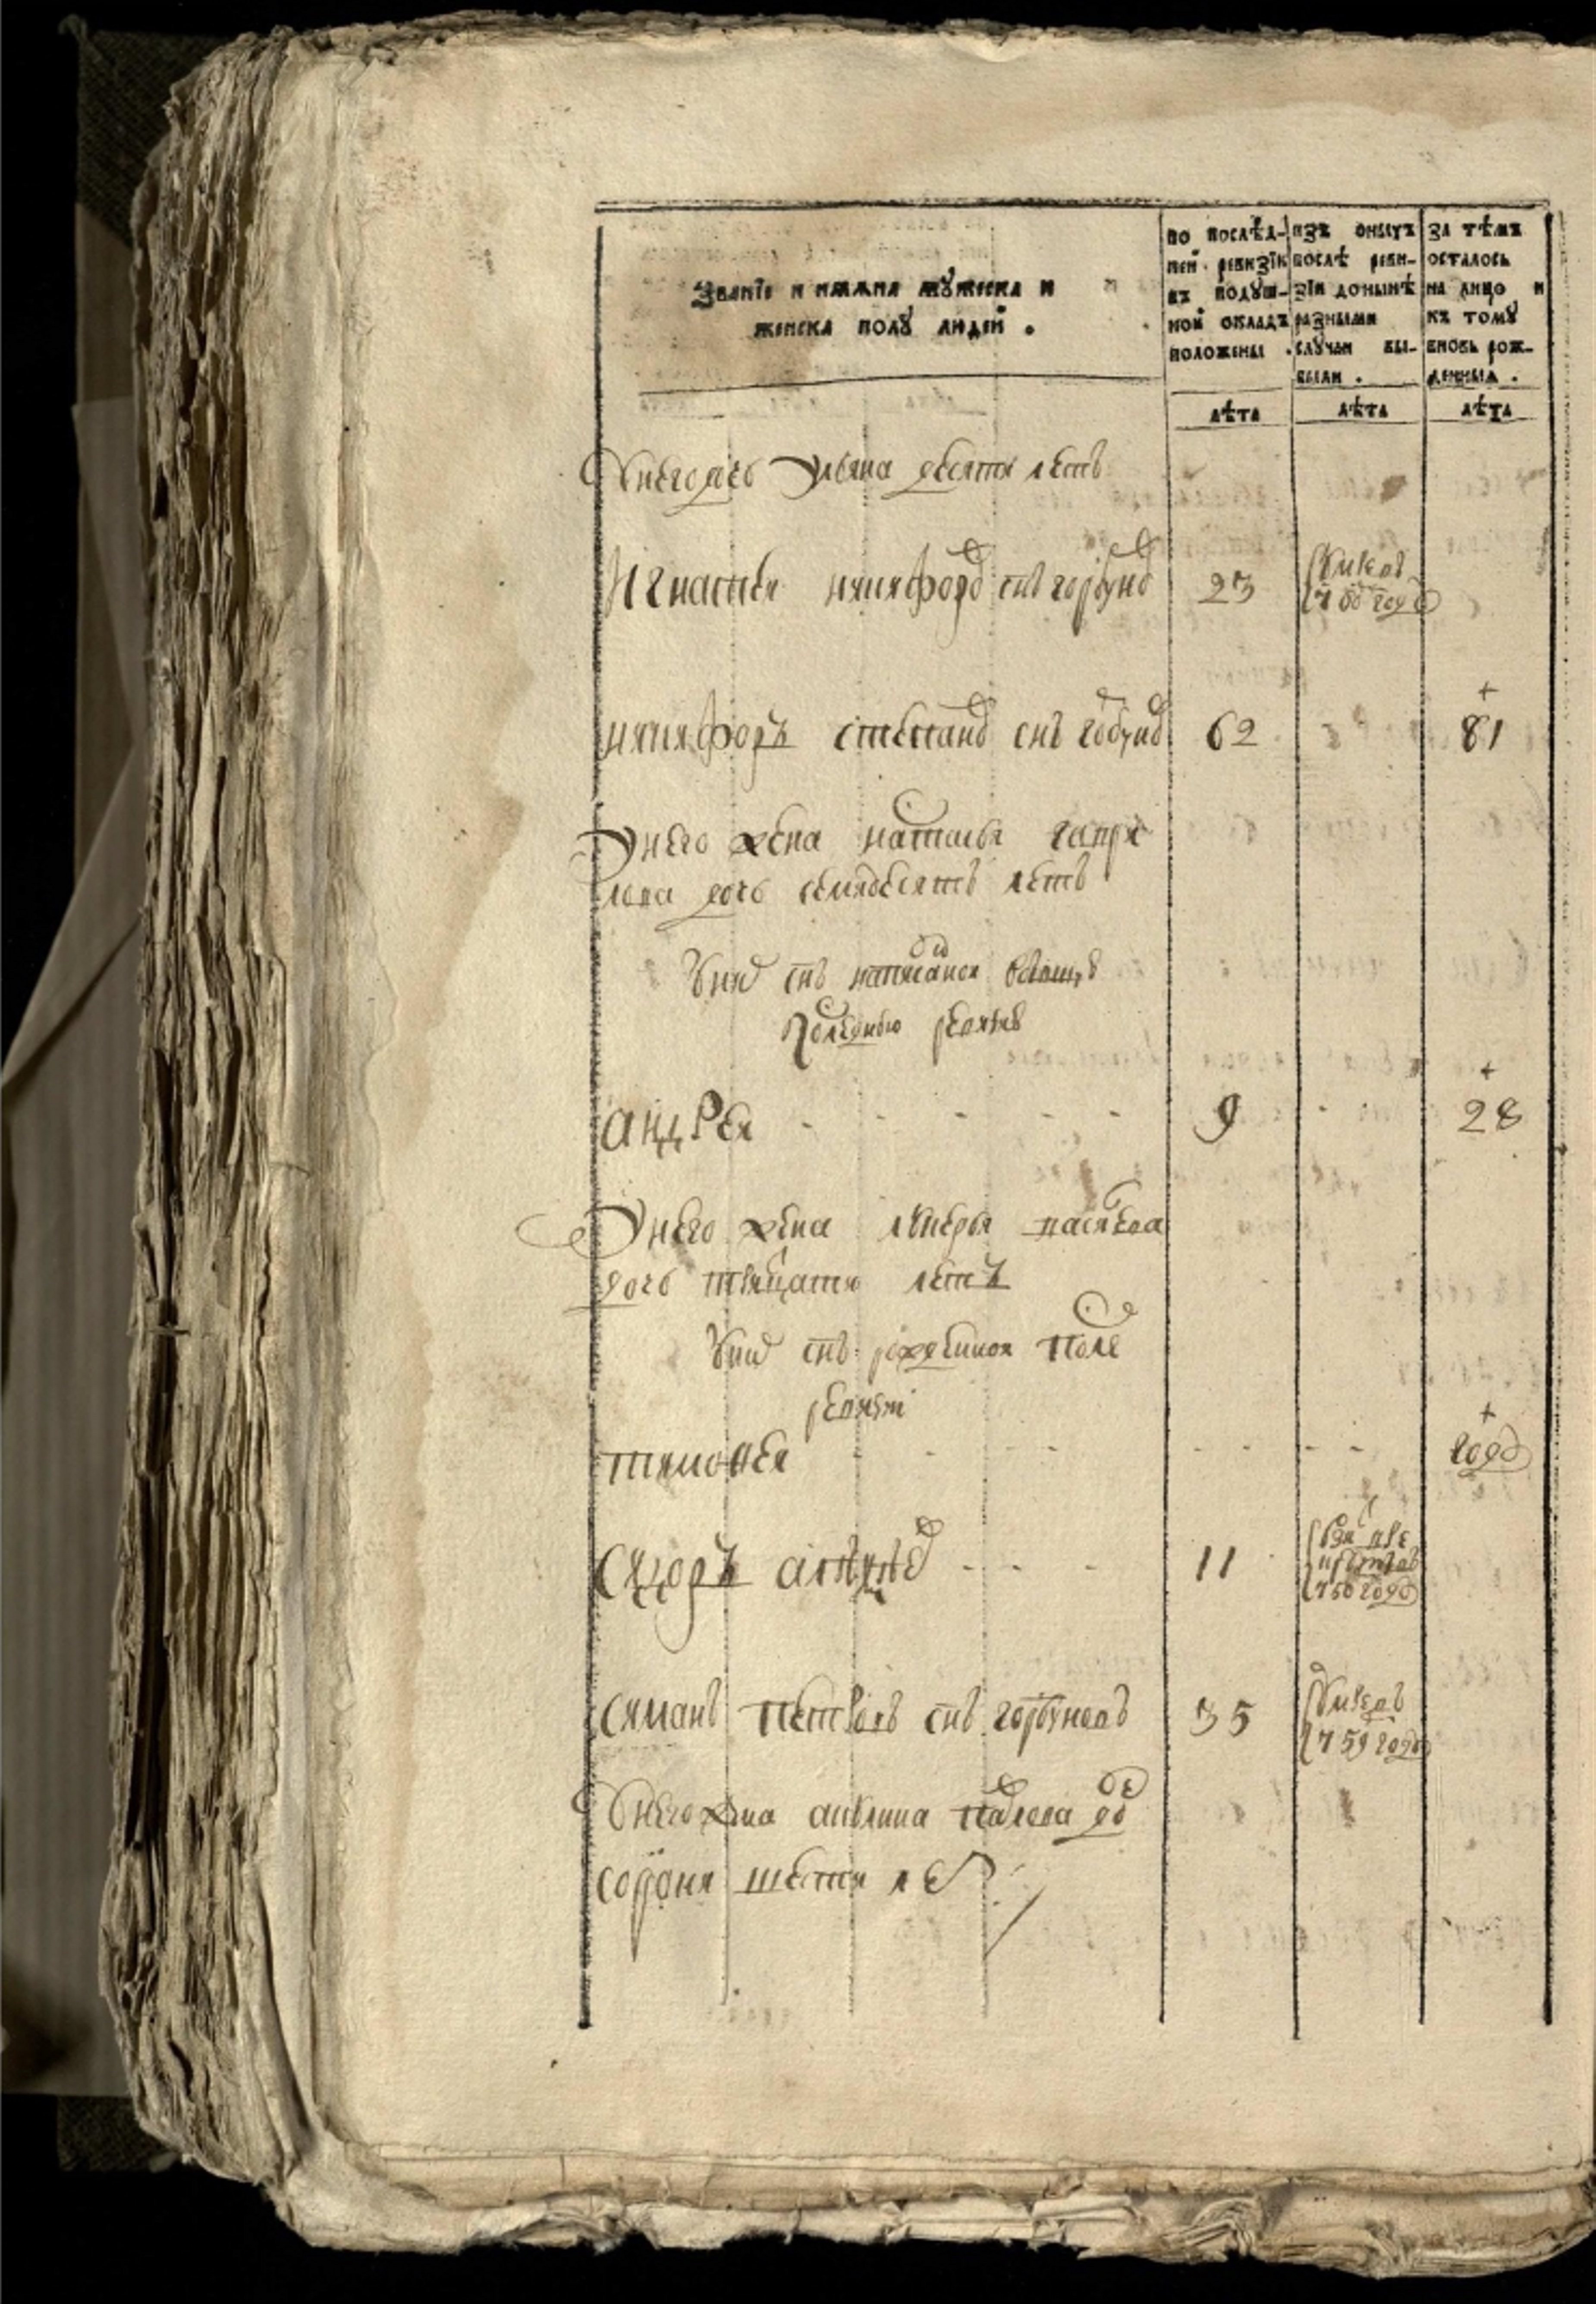 Званїе и имяна мужеска и
женска полу людей .
по послѣд-
ней ревизїи
въ подуш-
ной окладъ
положены .
изъ оныхъ
послѣ реви-
зїи донынѣ
разными
случаи вы-
были .
за тѣмъ
осталось
на лицо и
къ тому
вновь рож-
денныя .
лѣта лѣта лѣта
У него дочь Ульяна десяти летъ
Игнатей Никифоровъ снъ Горбуновъ 23 Умре въ 760 году
Никифоръ Степановъ снъ Горбуновъ 62 +81
У него жена Наталья Гаври
лова дочь семидесятъ летъ
У них снъ написаной в бывшую
последнюю ревизию
Андрей - - - - - 9 - - +28
У него жена Лукерья Васильева
дочь тритцати летъ
У них снъ рожденной после
ревизи
Тимофей - - - - - - - + годъ
Сидоръ - - - 11 взят в ре
круты въ
760 году
Симанъ Петровъ снъ Горбуновъ 35 Умре въ
759 году
У него жена Акулина Павлова до
сорока шести ле